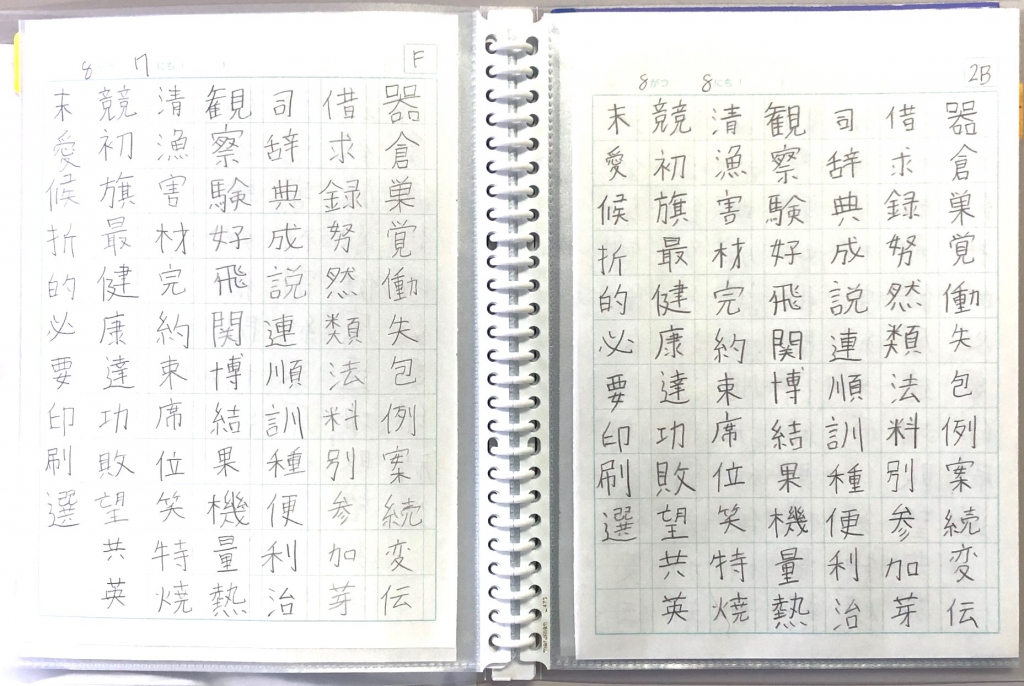 8 7
F
器倉巣覚働失包例案続変伝
借求録努然類法料別参加芽
司辞典成説連順訓種便利治
観察験好飛関博結果機量熱
清漁害材完約束席位笑特焼
競初旗最健康達功敗望共英
末愛候折的必要印刷選
8がつ 8にち
2B
器倉巣覚働失包例案続変伝
借求録努然類法料別参加芽
司辞典成説連順訓種便利治
観察験好飛関博結果機量熱
清漁害材完約束席位笑特焼
競初旗最健康達功敗望共英
末愛候折的必要印刷選